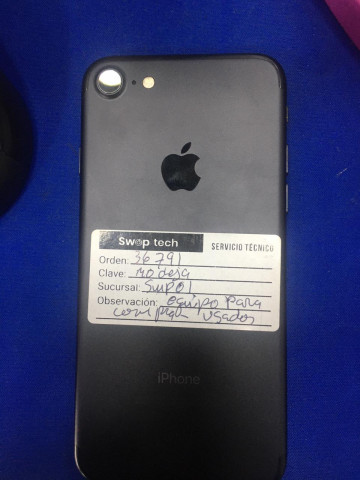 Swop tech SERVICIO TÉCNICO
Orden: 36791
Clave: no deja
Sucursal: Swp01
Observación: equipo para
compra usados
iPhone